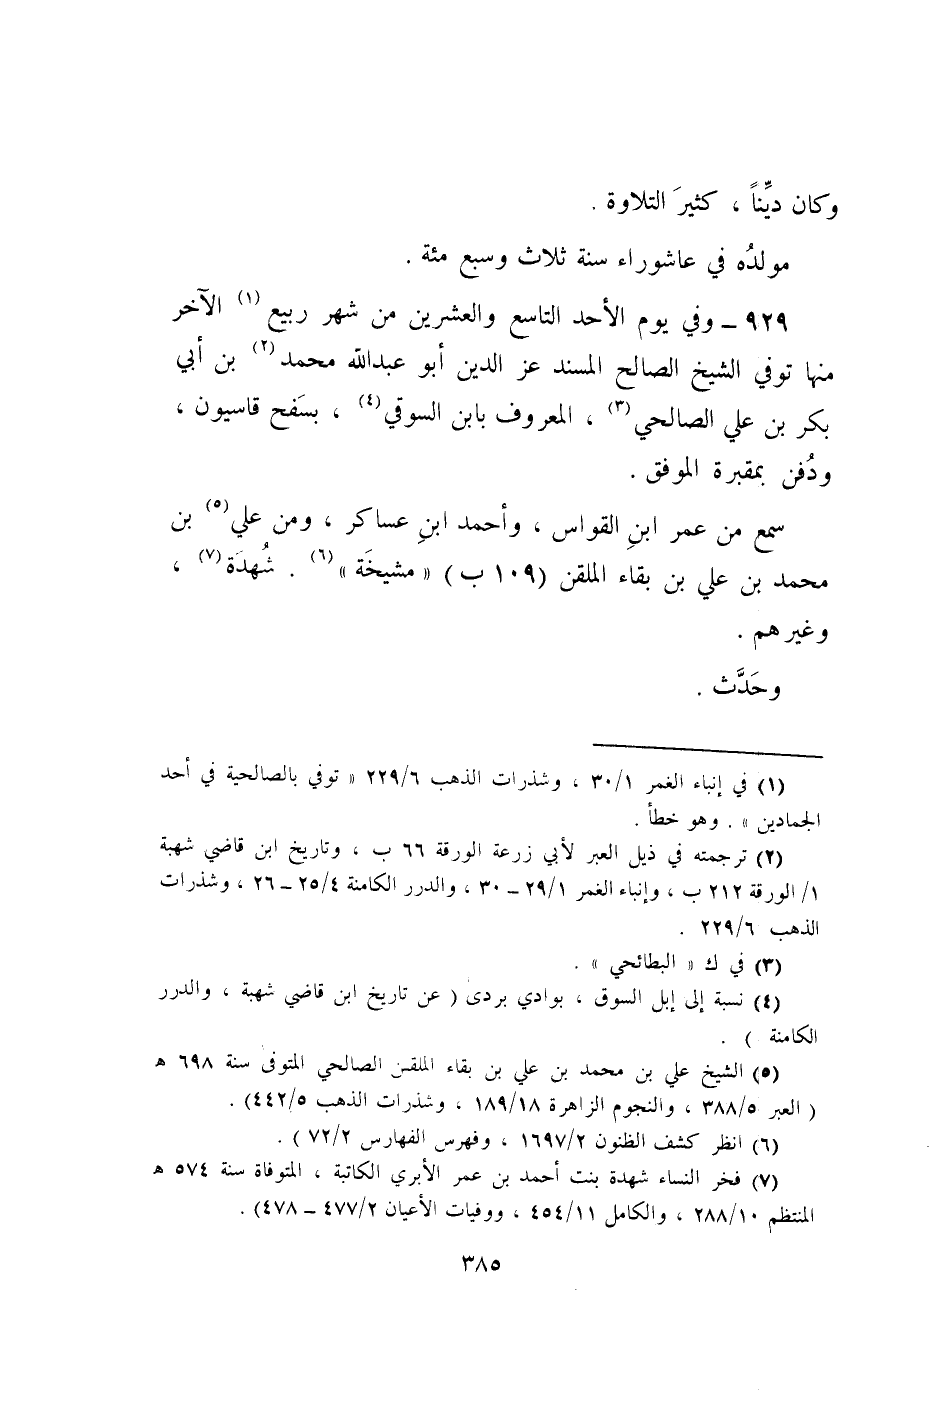 وكان ديِّناً ، كثيرَ التلاوة .
مولدُه في عاشوراء سنة ثلاث وسبع مئة .
٩٢٩ ـ وفي يوم الأحد التاسع والعشرين من شهر ربيع (١) الآخر
منها توفي الشيخ الصالح المسند عز الدين أبو عبدالله محمد (٢) بن أبي
بكر بن علي الصالحي (٣) ، المعروف بابن السوقي (٤) ، بسَفح قاسيون ،
ودُفن بمقبرة الموفق .
سمع من عمر ابنِ القواس ، وأحمد ابنِ عساكر ، ومن علي (٥) بن
محمد بن علي بن بقاء الملقن (١٠٩ ب) « مشيخَة » (٦) . شُهدَة (٧) ،
وغيرهم .
وحَدَّث .
(١) في إنباء الغمر ٣٠/١ ، وشذرات الذهب ٢٢٩/٦ « توفي بالصالحية في أحد
الجمادين » . وهو خطأ .
(٢) ترجمته في ذيل العبر لأبي زرعة الورقة ٦٦ ب ، وتاريخ ابن قاضي شهبة
١/ الورقة ٢١٢ ب ، وإنباء الغمر ٢٩/١ ـ ٣٠ ، والدرر الكامنة ٢٥/٤ ـ ٢٦ ، وشذرات
الذهب ٢٢٩/٦ .
(٣) في ك « البطائحي » .
(٤) نسبة إلى إبل السوق ، بوادي بردى ( عن تاريخ ابن قاضي شهبة ، والدرر
الكامنة ) .
(٥) الشيخ علي بن محمد بن علي بن بقاء الملقن الصالحي المتوفى سنة ٦٩٨ ه
( العبر ٣٨٨/٥ ، والنجوم الزاهرة ١٨٩/١٨ ، وشذرات الذهب ٤٤٢/٥) .
(٦) انظر كشف الظنون ١٦٩٧/٢ ، وفهرس الفهارس ٧٢/٢ ) .
(٧) فخر النساء شهدة بنت أحمد بن عمر الأبري الكاتبة ، المتوفاة سنة ٥٧٤ ه
المنتظم ٢٨٨/١٠ ، والكامل ٤٥٤/١١ ، ووفيات الأعيان ٤٧٧/٢ ـ ٤٧٨) .
٣٨٥